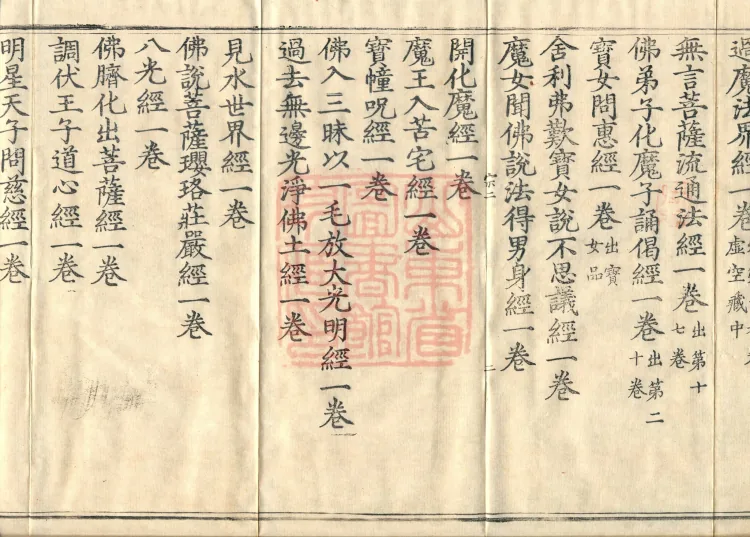 過魔法界經一卷
虛空藏中
無言菩薩流通法經一卷 出第十七卷
佛弟子化魔子誦偈經一卷 出第二十卷
寶女問惠經一卷 出寶女品
舍利弗歎寶女說不思議經一卷
魔女聞佛說法得男身經一卷
開化魔經一卷
魔王入苦宅經一卷
寶幢呪經一卷
佛入三昧以一毛放大光明經一卷
過去無邊光淨佛土經一卷
見水世界經一卷
佛說菩薩瓔珞莊嚴經一卷
八光經一卷
佛臍化出菩薩經一卷
調伏王子道心經一卷
明星天子問慈經一卷